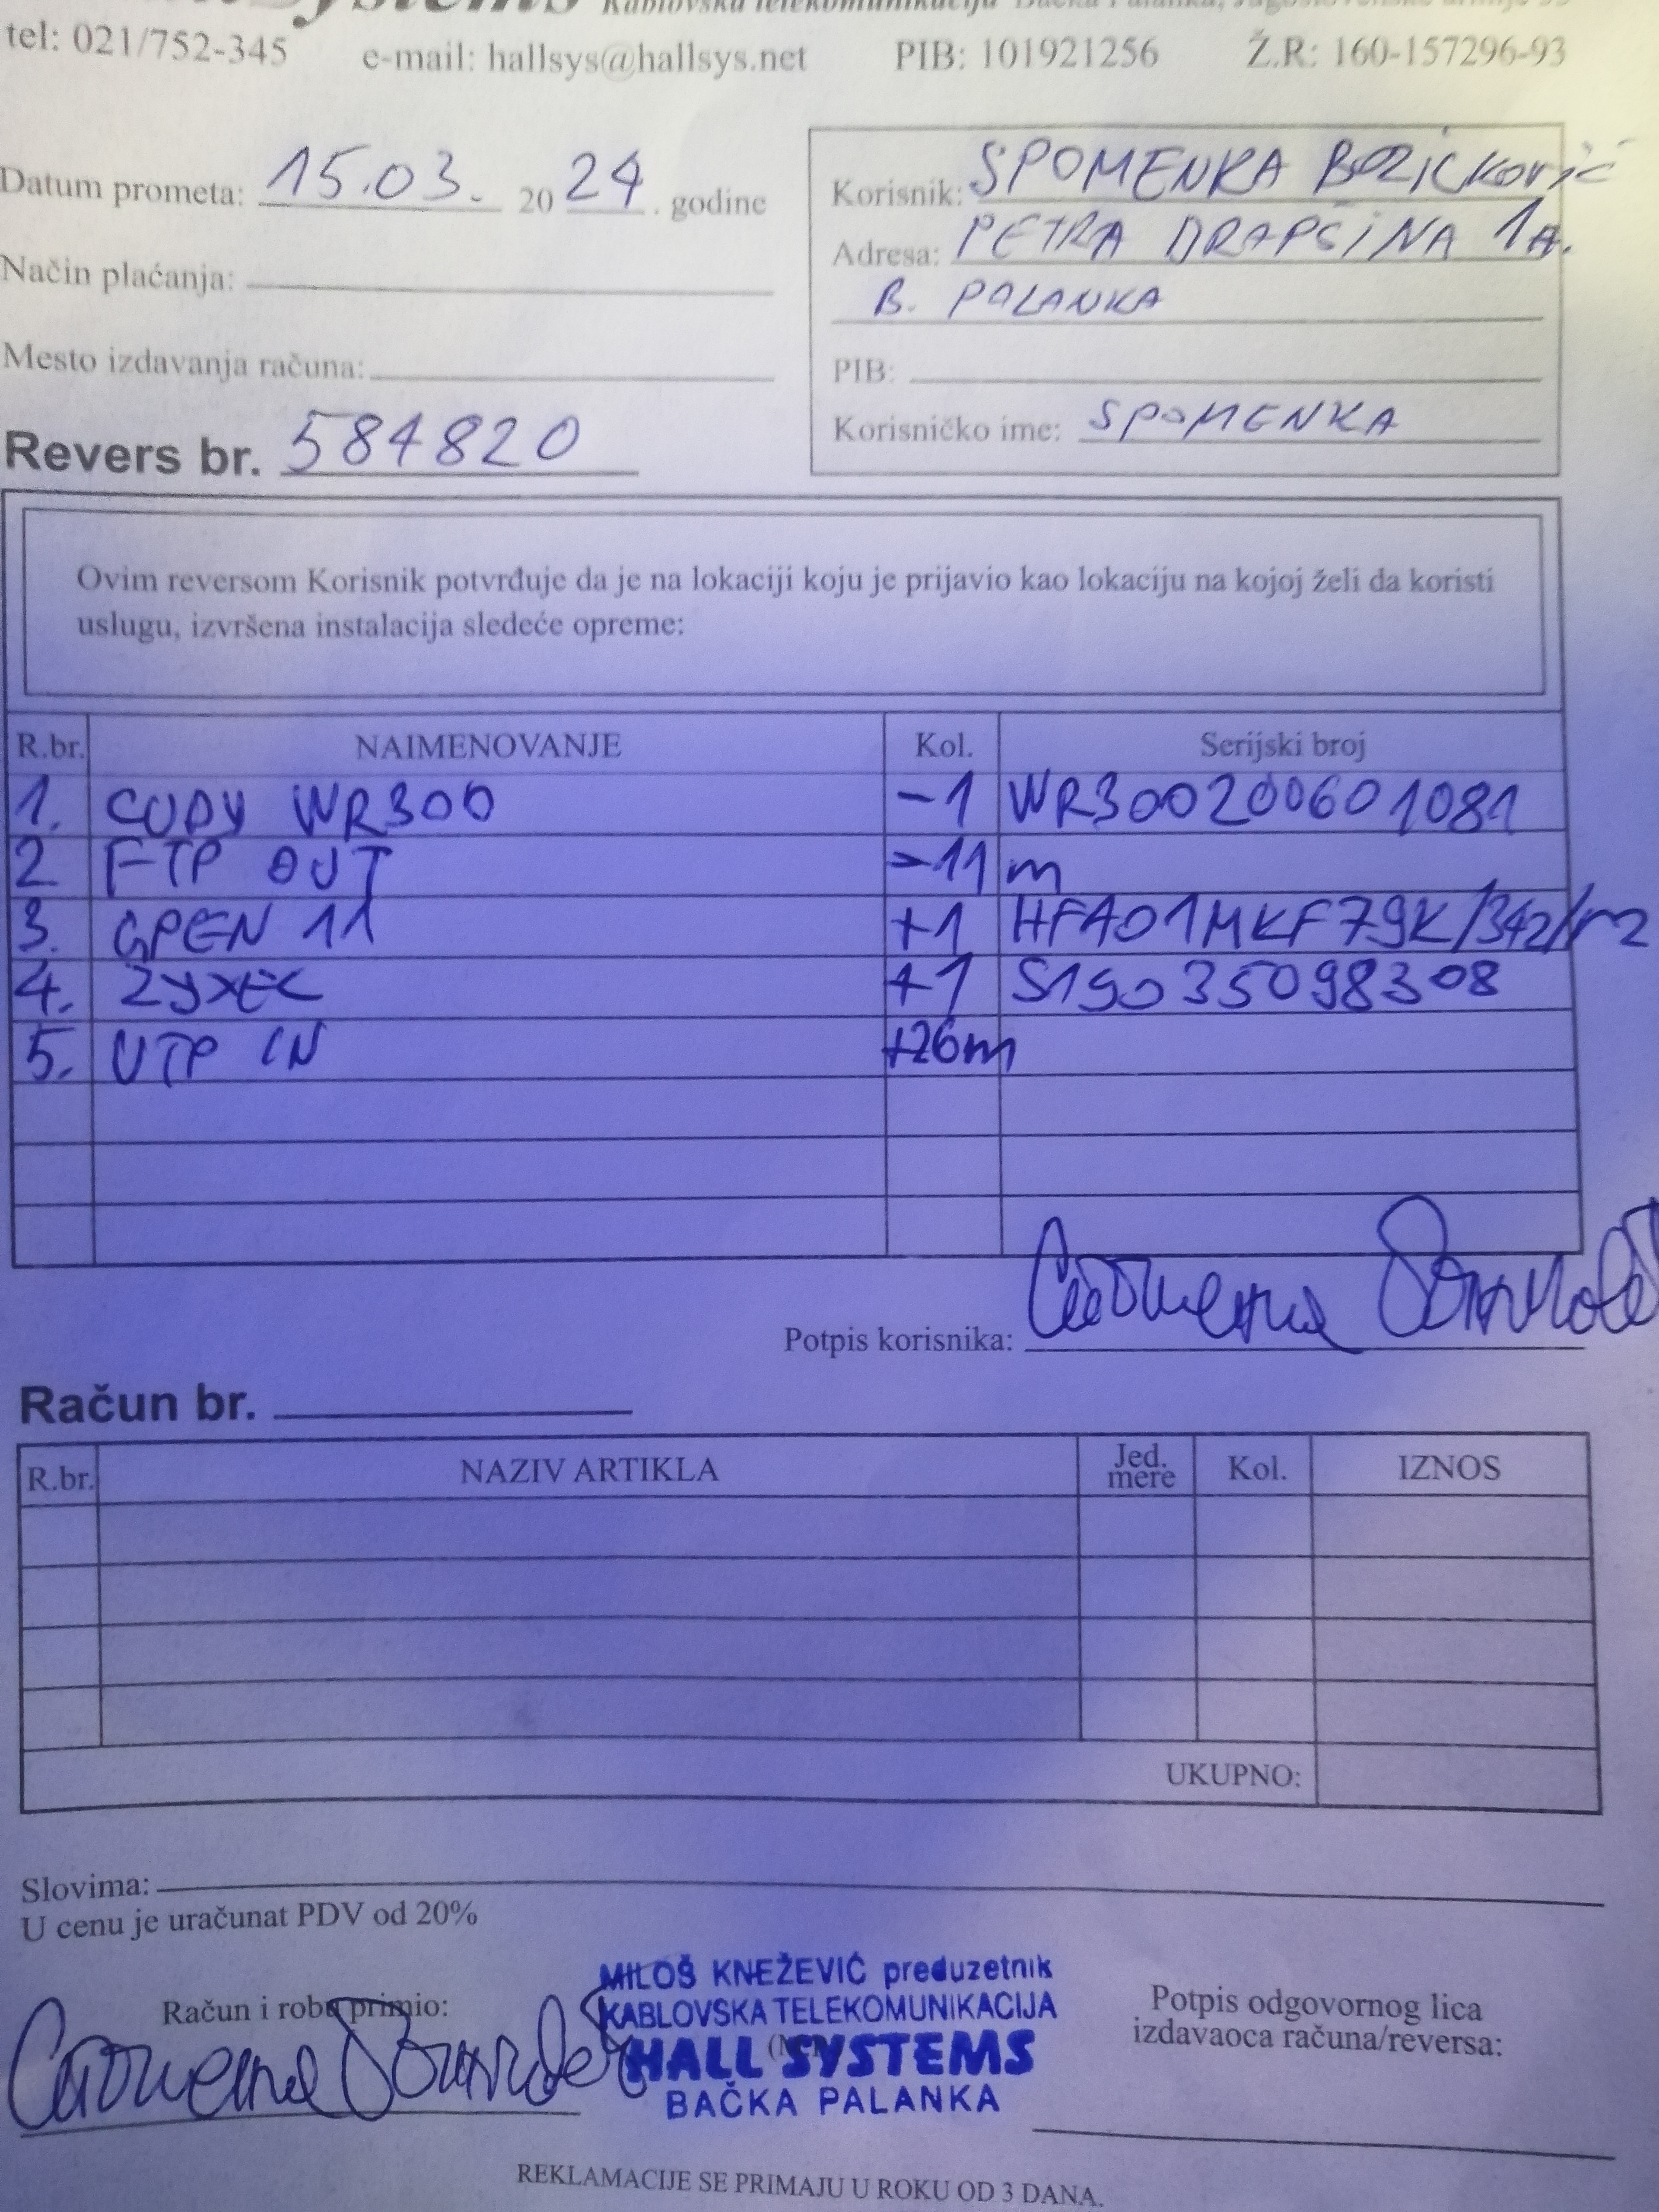 Systems Kablovska telekomunikacija Bačka Palanka, Jugoslovenske armije
tel: 021/752-345 e-mail: hallsys@hallsys.net PIB: 101921256 Ž.R: 160-157296-93
Datum prometa: 15.03. 2024. godine
Način plaćanja:
Mesto izdavanja računa:
Revers br. 584820
Korisnik: SPOMENKA BOZICKOVIĆ
Adresa: PETRA DRAPŠINA 1A.
B. PALANKA
PIB:
Korisničko ime: SPOMENKA
Ovim reversom Korisnik potvrđuje da je na lokaciji koju je prijavio kao lokaciju na kojoj želi da koristi
uslugu, izvršena instalacija sledeće opreme:
R.br. NAIMENOVANJE Kol. Serijski broj
1. CUDY WR300 -1 WR300200601081
2 FTP OUT -11 m
3. GPEN 11 +1 HFA01MKF79K/342/r2
4. ZyxEL +1 S19035098308
5. UTP IN +26m
Potpis korisnika:
Račun br.
R.br. NAZIV ARTIKLA Jed. mere Kol. IZNOS
UKUPNO:
Slovima:
U cenu je uračunat PDV od 20%
Račun i robu primio:
MILOŠ KNEŽEVIĆ preduzetnik
KABLOVSKA TELEKOMUNIKACIJA
HALL SYSTEMS
BAČKA PALANKA
Potpis odgovornog lica
izdavaoca računa/reversa:
REKLAMACIJE SE PRIMAJU U ROKU OD 3 DANA.